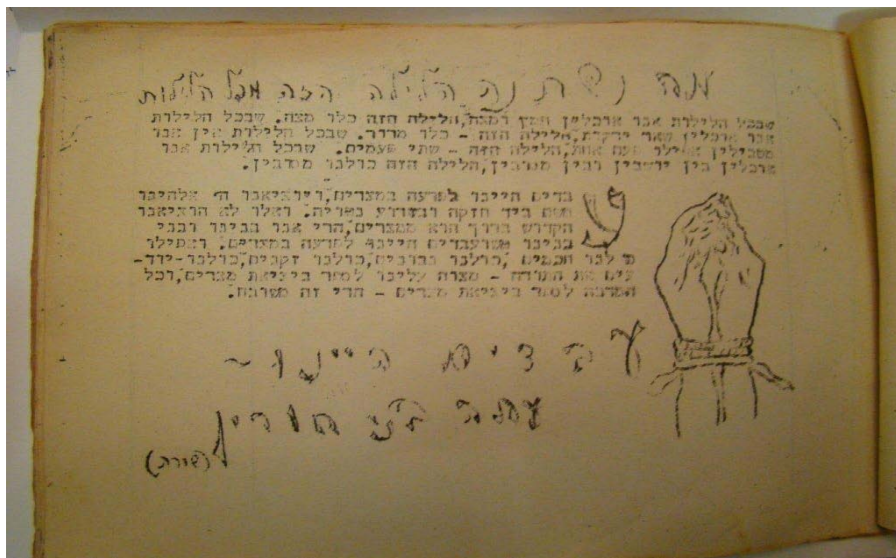 מה נשתנה הלילה הזה מכל הלילות
שבכל הלילות אנו אוכלין חמץ ומצה,הלילה הזה כלו מצה. שבכל הלילות
אנו אוכלין שאר ירקות,הלילה הזה - כלו מרור. שבכל הלילות אין אנו
מטבילין אפילו פעם אחת,הלילה הזה - שתי פעמים. שבכל הלילות אנו
אוכלין בין יושבין ובין מסובין,הלילה הזה כולנו מסובין.
עבדים היינו לפרעה במצרים,ויוציאנו ה' אלהינו
משם ביד חזקה ובזרוע נטויה. ואלו לא הוציאנו
הקדוש ברוך הוא ממצרים,הרי אנו בנינו ובני
בנינו משועבדים היינו לפרעה במצרים. ואפילו
כולנו חכמים ,כולנו נבונים,כולנו זקנים,כולנו-יוד-
עים את התורה - מצוה עלינו לספר ביציאת מצרים,וכל
המרבה לספר ביציאת מצרים - הרי זה משובח.
עבדים היינו -
עתה בני חורין
(שירה)